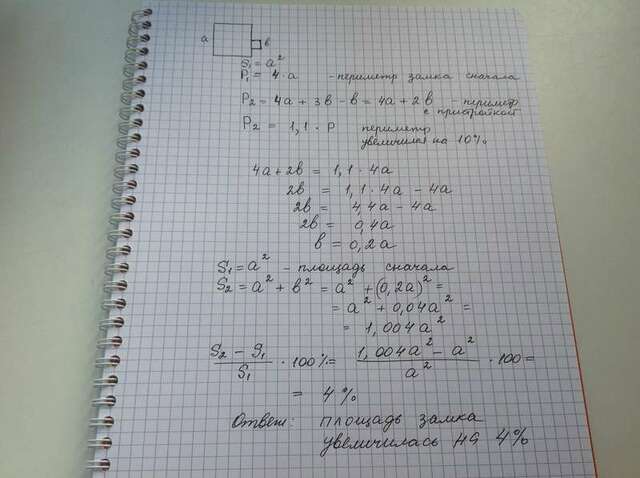 a
в
S₁ = a²
P₁ = 4·a - периметр замка сначала
P₂ = 4a + 3в - в = 4a + 2в - периметр
с пристройкой
P₂ = 1,1·P периметр
увеличился на 10%
4a + 2в = 1,1·4a
2в = 1,1·4a - 4a
2в = 4,4a - 4a
2в = 0,4a
в = 0,2a
S₁ = a² - площадь сначала
S₂ = a² + в² = a² + (0,2a)² =
= a² + 0,04a² =
= 1,004a²
(S₂ - S₁)/S₁ · 100% = (1,004a² - a²)/a² · 100 =
= 4%
Ответ: площадь замка
увеличилась на 4%